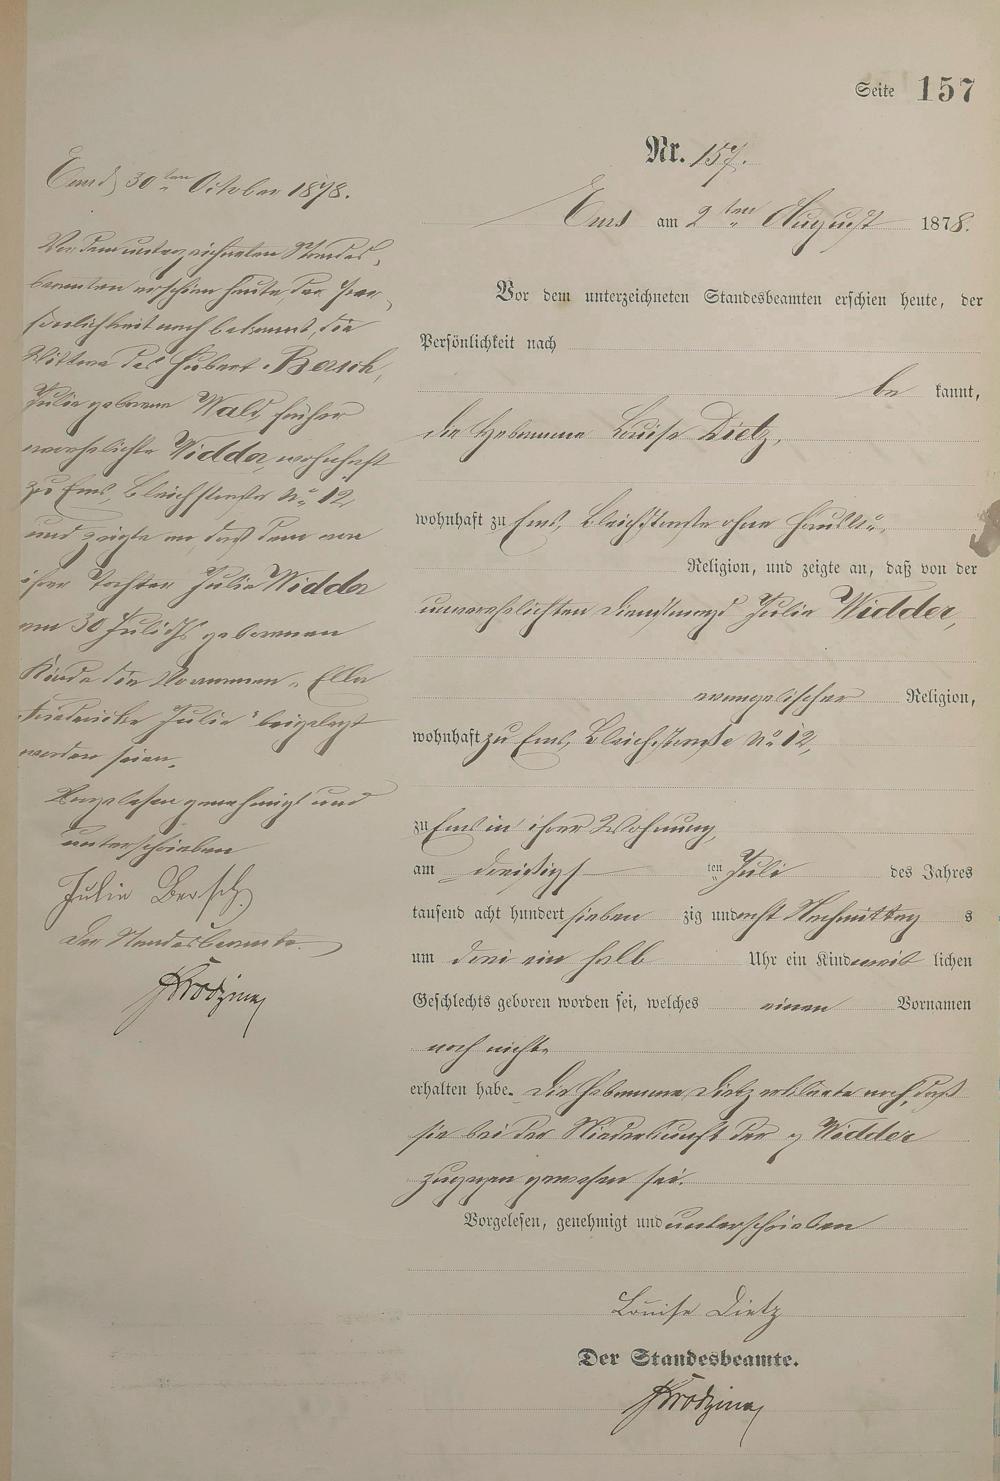 Seite 157
Nr. 157.
Ems am 2ten August 1878.
Vor dem unterzeichneten Standesbeamten erschien heute, der
Persönlichkeit nach
be kannt,
die Hebamme Louise Dietz,
wohnhaft zu Ems, Bleichstraße ohne Haus No,
Religion, und zeigte an, daß von der
unverehelichten Dienstmagd Julie Widder,
evangelischer Religion,
wohnhaft zu Ems, Bleichstraße No 12,
zu Ems in ihrer Wohnung,
am dreißigsten Juli des Jahres
tausend acht hundert sieben zig und acht Nachmittag s
um drei ein halb Uhr ein Kind weib lichen
Geschlechts geboren worden sei, welches einen Vornamen
noch nicht
erhalten habe. Die Hebamme Dietz erklärte noch, daß
sie bei der Niederkunft der Widder
zugegen gewesen sei.
Vorgelesen, genehmigt und unterschrieben
Louise Dietz
Der Standesbeamte.
Ems, 30ten October 1878.
Vor dem unterzeichneten Standes-
beamten erschien heute, der Per-
sönlichkeit nach bekannt, die
Wittwe des Hubert Bersch,
Julie geborene Wald, früher
verehelichte Widder, wohnhaft
zu Ems, Bleichstraße No 12,
und zeigte an, daß dem von
ihrer Tochter Julie Widder
am 30 Juli geborenen
Kinde die Vornamen „Ella
Friedericke Julie" beigelegt
worden seien.
Vorgelesen genehmigt und
unterschrieben
Julie Bersch.
Der Standesbeamte.